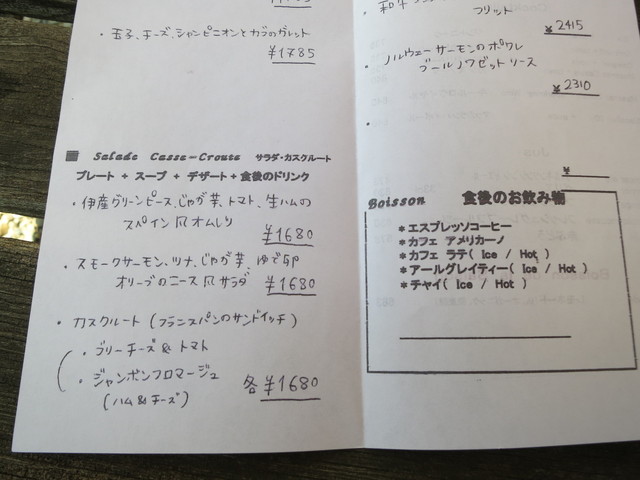 ・玉子、チーズ、シャンピニオンとカブのガレット
¥1785
■ Salade Casse-Croute サラダ・カスクルート
プレート + スープ + デザート+食後のドリンク
・伊産グリーンピース、じゃが芋、トマト、生ハムの
スペイン風オムレツ
¥1680
・スモークサーモン、ツナ、じゃが芋、ゆで卵
オリーブのニース風サラダ ¥1680
・カスクルート (フランスパンのサンドイッチ)
・ブリーチーズ&トマト
・ジャンボンフロマージュ 各¥1680
(ハム&チーズ)
フリット
¥2415
・ノルウェーサーモンのポワレ
ブールノワゼットソース
¥2310
・
¥
Boisson 食後のお飲み物
*エスプレッソコーヒー
*カフェ アメリカーノ
*カフェ ラテ( Ice / Hot )
*アールグレイティー( Ice / Hot )
*チャイ( Ice / Hot )